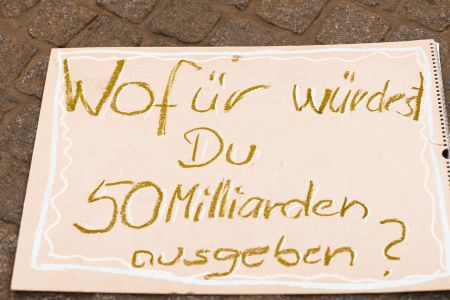 Wofür würdest
Du
50 Milliarden
ausgeben?